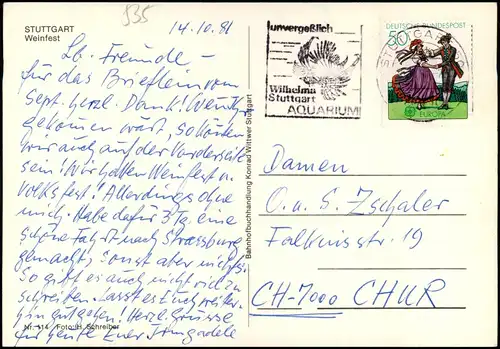 535
STUTTGART
Weinfest
14.10.81
Lb. Freunde –
für das Brieflein vom
Sept. herzl. Dank! Wenn ihr
gekommen wärt, so könnten
wir auch auf der Vorderseite
sein! Wir hatten Weinfest u.
Volksfest! Allerdings ohne
mich. Habe dafür 3 Tg. eine
schöne Fahrt nach Strassburg
gemacht, sonst aber nichts.
So gibt es auch nicht viel zu
schreiben. Lasst es Euch weiter-
hin gut gehen! Herzl. Grüsse
für heute Eure Irmgadele
Nr. 114 Foto: H. Schreiber
Bahnhofbuchhandlung Konrad Wittwer Stuttgart
unvergeßlich
Wilhelma
Stuttgart
AQUARIUM
DEUTSCHE BUNDESPOST
50
STUTTGART
EUROPA
Damen
O. u. S. Zschaler
Falknisstr. 19
CH-7000 CHUR